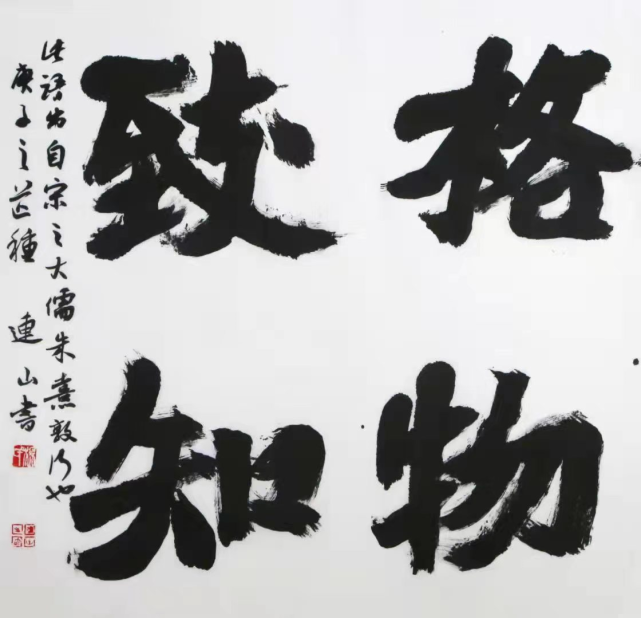 格物
致知
此语出自宗之大儒朱熹敦行也
庚子之芒種 連山書